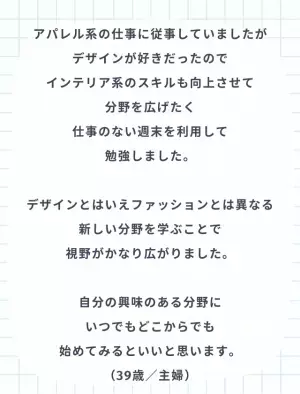 アパレル系の仕事に従事していましたが
デザインが好きだったので
インテリア系のスキルも向上させて
分野を広げたく
仕事のない週末を利用して
勉強しました。
デザインとはいえファッションとは異なる
新しい分野を学ぶことで
視野がかなり広がりました。
自分の興味のある分野に
いつでもどこからでも
始めてみるといいと思います。
(39歳／主婦)